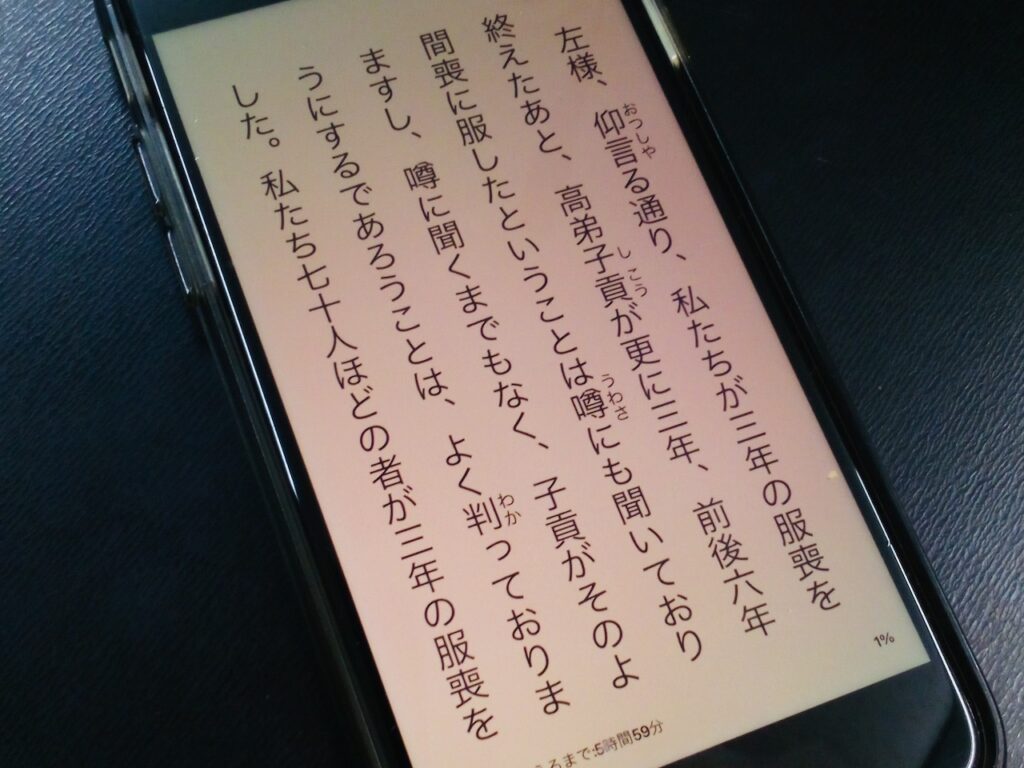 左様、仰言る通り、私たちが三年の服喪を
終えたあと、高弟子貢が更に三年、前後六年
間喪に服したということは噂にも聞いており
ますし、噂に聞くまでもなく、子貢がそのよ
うにするであろうことは、よく判っておりま
した。私たち七十人ほどの者が三年の服喪を
おつしや
しこう
うわさ
わか
1%
まで:5時間59分